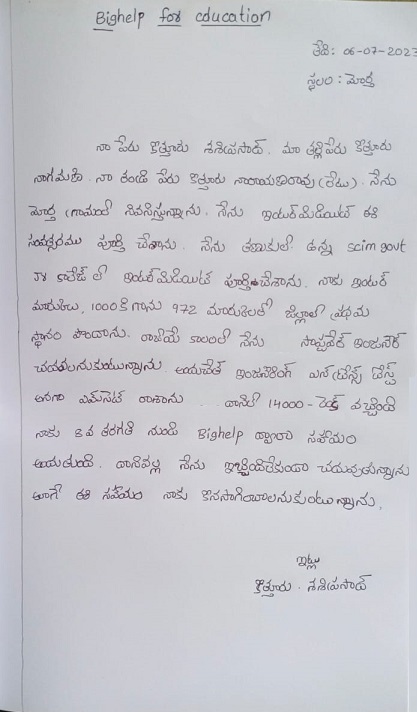 Bighelp for cducation
తేది: 06-07-2023
స్థలం : మోర్త
నా పేరు కొత్తూరు శశిప్రసాద్. మా తల్లిపేరు కొత్తూరు
నాగమణి. నా తండ్రి పేరు కొత్తూరు నారాయణరావు (లేటు). నేను
మోర్త గ్రామంలో నివసిస్తున్నాను. నేను ఇంటర్మీడియెట్ ఈ
సంవత్సరము పూర్తి చేశాను. నేను తణుకులో ఉన్న scim govt
Jr కాలేజ్ లో ఇంటర్మీడియెట్ పూర్తిచేశాను. నాకు ఇంటర్
మార్కులు, 1000కి గాను 972 మార్కులతో జిల్లాలో ప్రథమ
స్థానం పొందాను. రాబోయే కాలంలో నేను సాఫ్ట్వేర్ ఇంజనీర్
చదవాలనుకుంటున్నాను. అయితే ఇంజనీరింగ్ ఎంట్రన్స్ టెస్ట్
అనగా ఎమ్సెట్ రాశాను. దానిలో 14000 - ర్యాంక్ వచ్చింది
నాకు 8వ తరగతి నుండి Bighelp ద్వారా సహాయం
అందుతుంది. దానివల్ల నేను ఇబ్బందిలేకుండా చదువుతున్నాను
అలాగే ఈ సహాయం నాకు కొనసాగించాలనుకుంటున్నాను.
ఇట్లు
కొత్తూరు . శశిప్రసాద్